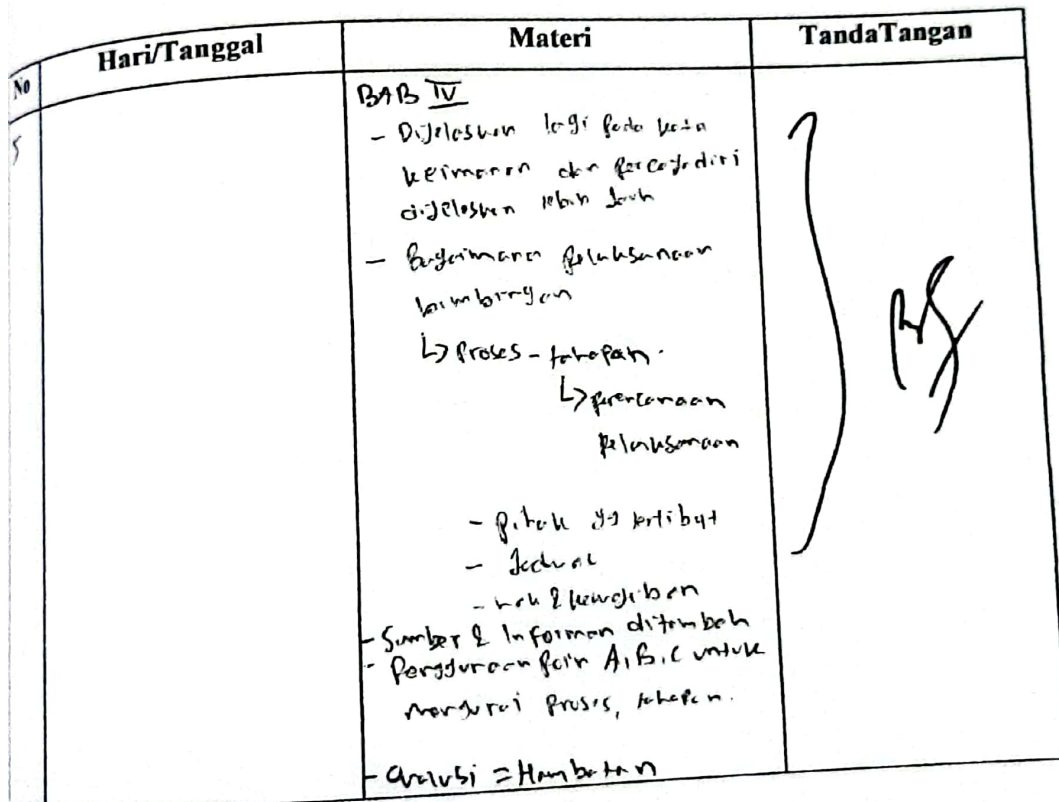 No Hari/Tanggal Materi TandaTangan
5
BAB IV
- Dijelaskan lagi pada kata
keimanan dan percaya diri
dijelaskan lebih jauh
- Bagaimana pelaksanaan
bimbingan
↳ Proses - tahapan.
↳ perencanaan
pelaksanaan
- pihak yg terlibat
- Jadwal
- hak & kewajiban
- Sumber & Informan ditambah
- Penggunaan poin A, B, C untuk
mengurai proses, tahapan.
- evalusi = Hambatan